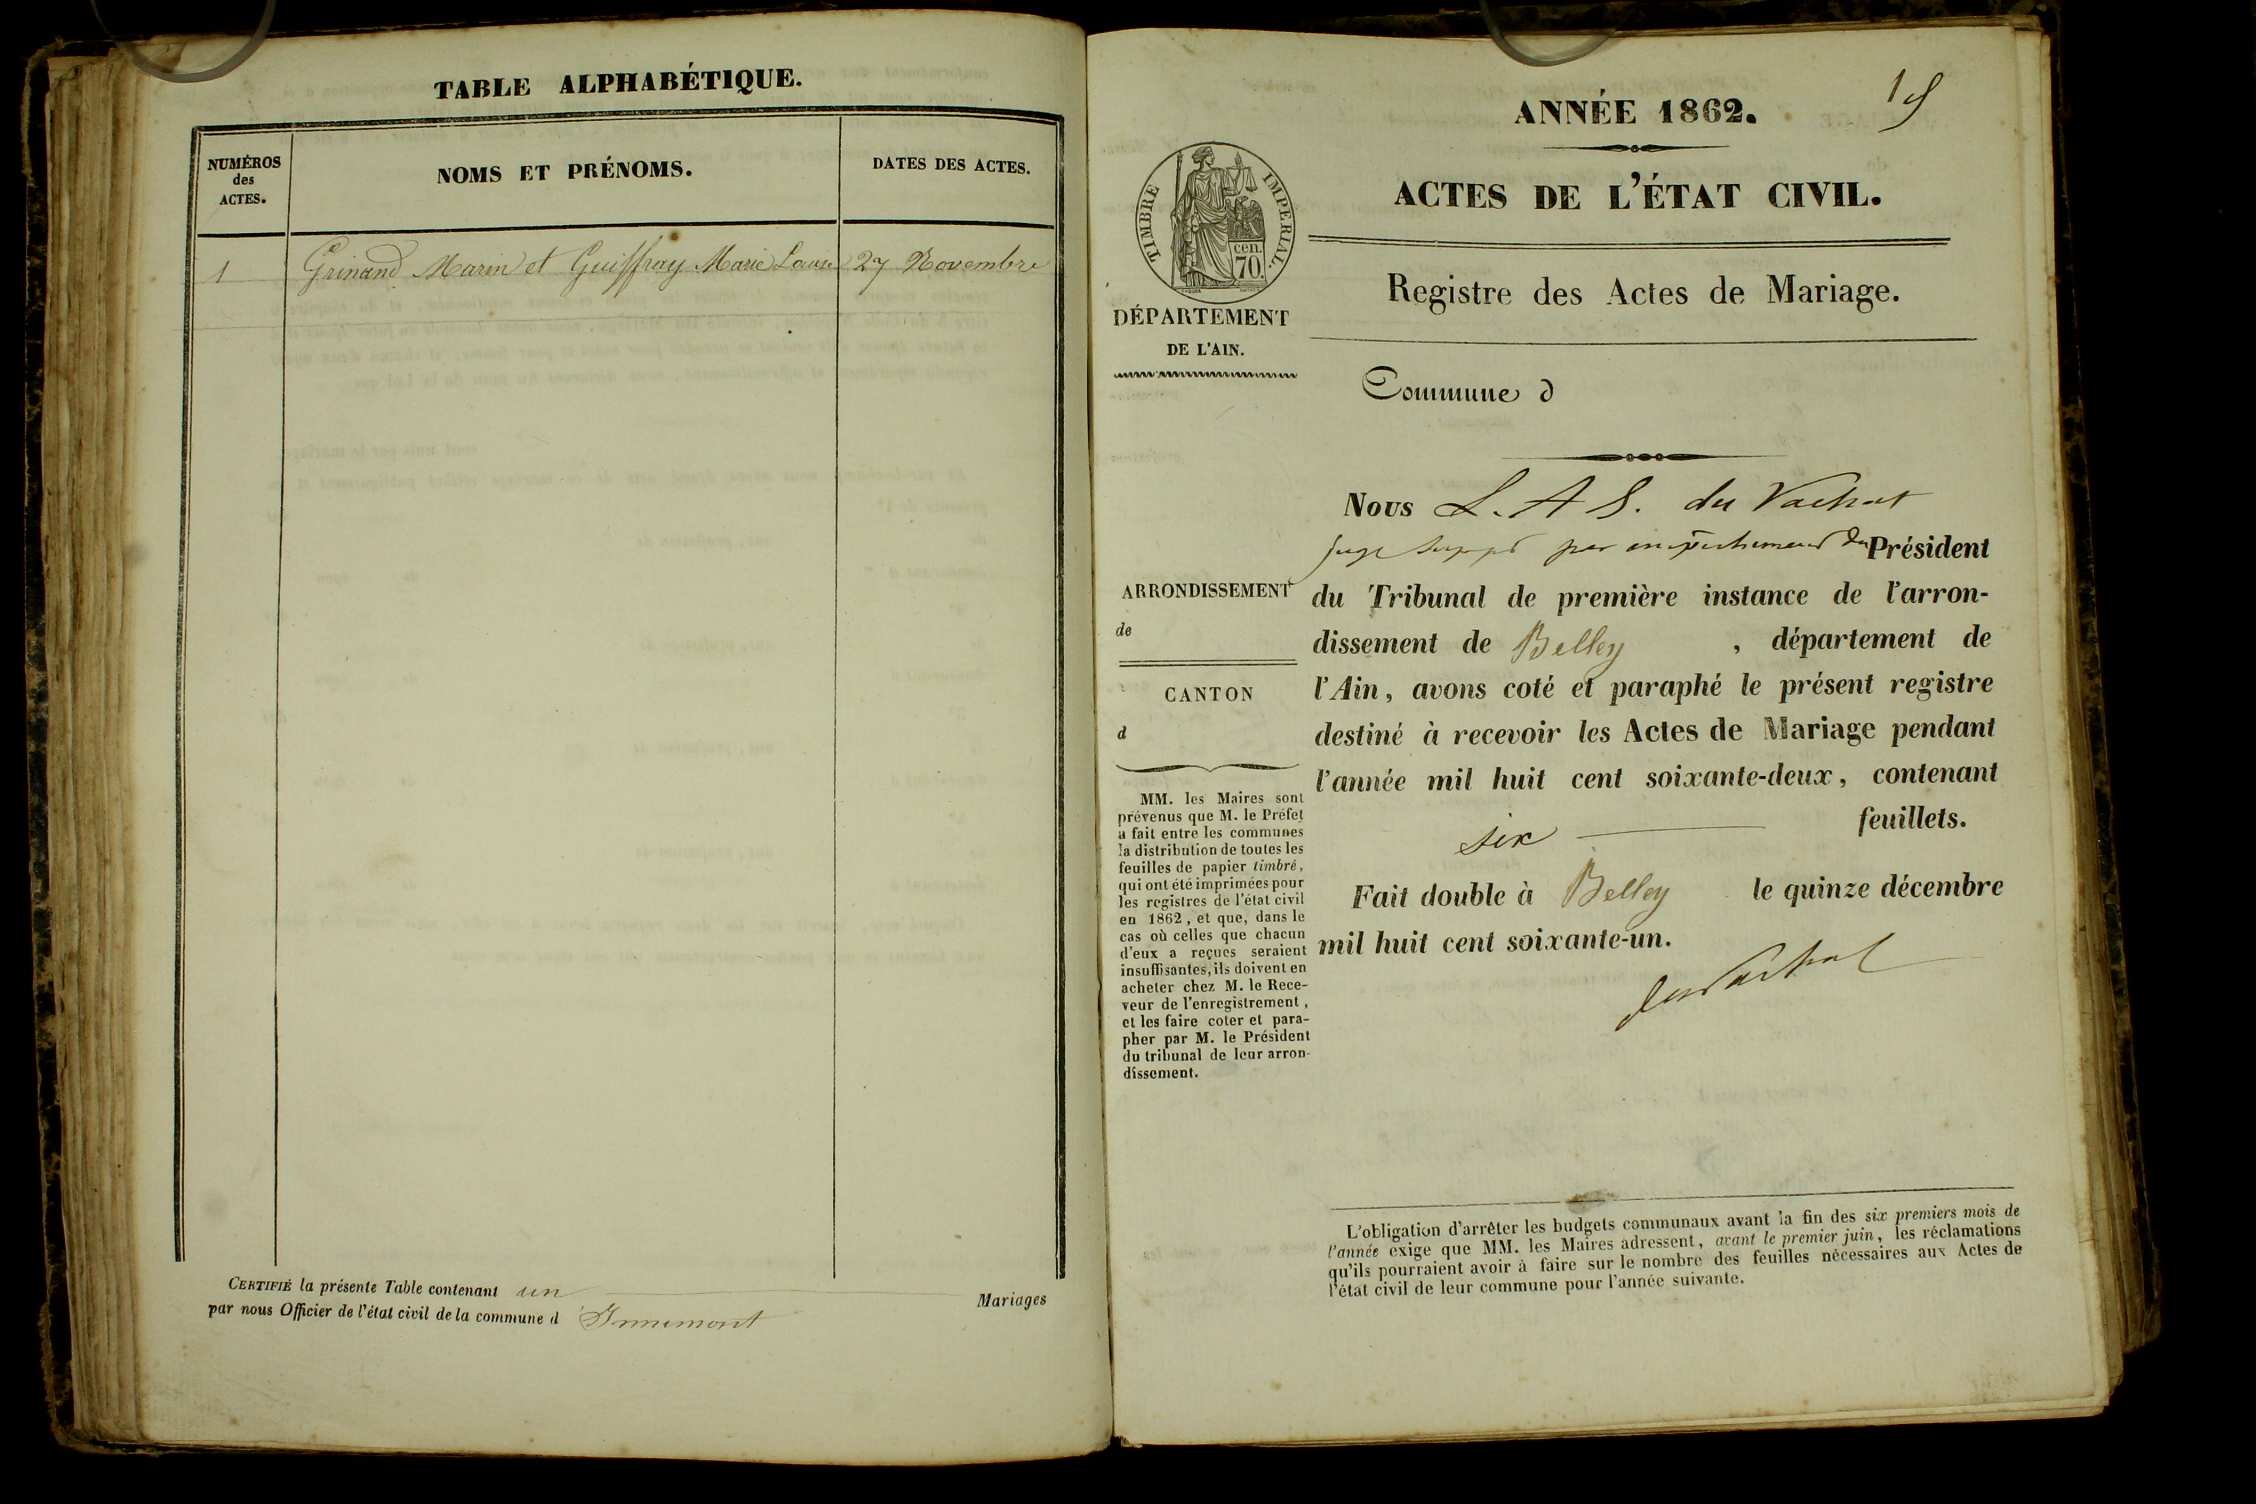 TABLE ALPHABÉTIQUE.
NUMÉROS
des
ACTES.
NOMS ET PRÉNOMS.
DATES DES ACTES.
1 Grinand Marin et Guiffray Marie Louise 27 Novembre
CERTIFIÉ la présente Table contenant un Mariages
par nous Officier de l'état civil de la commune d Innimont
1
ANNÉE 1862.
ACTES DE L'ÉTAT CIVIL.
TIMBRE IMPERIAL.
cen.
70.
DÉPARTEMENT
DE L'AIN.
Registre des Actes de Mariage.
Commune d
Nous L. A S. du Vachat
juge supp par empêchement du Président
du Tribunal de première instance de l'arron-
dissement de Belley, département de
l'Ain, avons coté et paraphé le présent registre
destiné à recevoir les Actes de Mariage pendant
l'année mil huit cent soixante-deux, contenant
six feuillets.
Fait double à Belley le quinze décembre
mil huit cent soixante-un.
du Vachat
ARRONDISSEMENT
de
CANTON
d
MM. les Maires sont
prévenus que M. le Préfet
a fait entre les communes
la distribution de toutes les
feuilles de papier timbré,
qui ont été imprimées pour
les registres de l'état civil
en 1862, et que, dans le
cas où celles que chacun
d'eux a reçues seraient
insuffisantes, ils doivent en
acheter chez M. le Rece-
veur de l'enregistrement,
et les faire coter et para-
pher par M. le Président
du tribunal de leur arron-
dissement.
L'obligation d'arrêter les budgets communaux avant la fin des six premiers mois de
l'année exige que MM. les Maires adressent, avant le premier juin, les réclamations
qu'ils pourraient avoir à faire sur le nombre des feuilles nécessaires aux Actes de
l'état civil de leur commune pour l'année suivante.